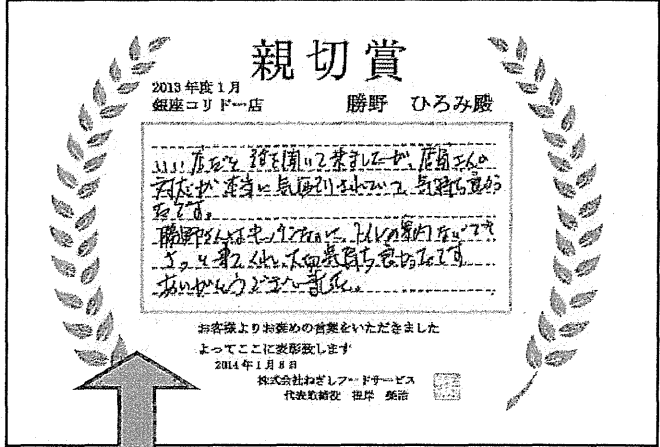 親切賞
2013年度1月
銀座コリドー店 勝野 ひろみ殿
いい店だと 話を聞いて来ましたが、店員さんの
対応が 本当に気配りされていて、気持ち良かっ
たです。
勝野さんはキッチンなのに、トイレの案内などで
さっと来てくれ、大変気持ち良かったです
ありがとうございました。
お客様よりお褒めの言葉をいただきました
よってここに表彰致します
2014年1月8日
株式会社ねぎしフードサービス
代表取締役 根岸 榮治